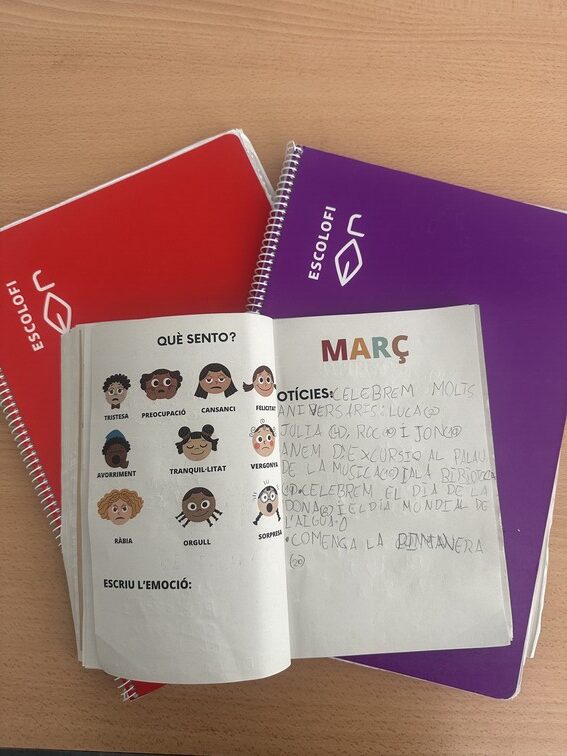 ESCOLOFI
ESCOLOFI
QUÈ SENTO?
TRISTESA
PREOCUPACIÓ
CANSANCI
FELICITAT
AVORRIMENT
TRANQUIL·LITAT
VERGONYA
RÀBIA
ORGULL
SORPRESA
ESCRIU L'EMOCIÓ:
MARÇ
OTÍCIES: CELEBREM MOLTS
ANIVERSARIS: LUCA
JULIA ROC I JON
ANEM D'EXCURSIO AL PALAU
DE LA MUSICA I A LA BIBLIOTECA
CELEBREM EL DIA DE LA
DONA I EL DIA MUNDIAL DE
L'AIGUA
•COMENÇA LA
(20)